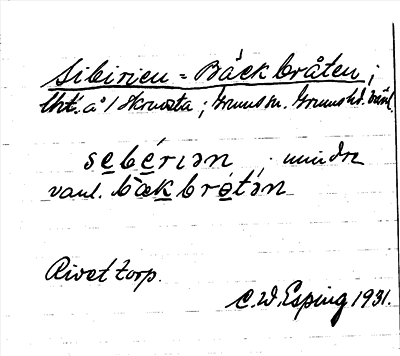 Sibirien = Bäckbråten;
lht. å 1 Skrvsta; Grums sn. Grums hd. Värml.
sebérıən mindre
vanl. bäkbrótən
Rivet torp.
C.W. Esping 1931.